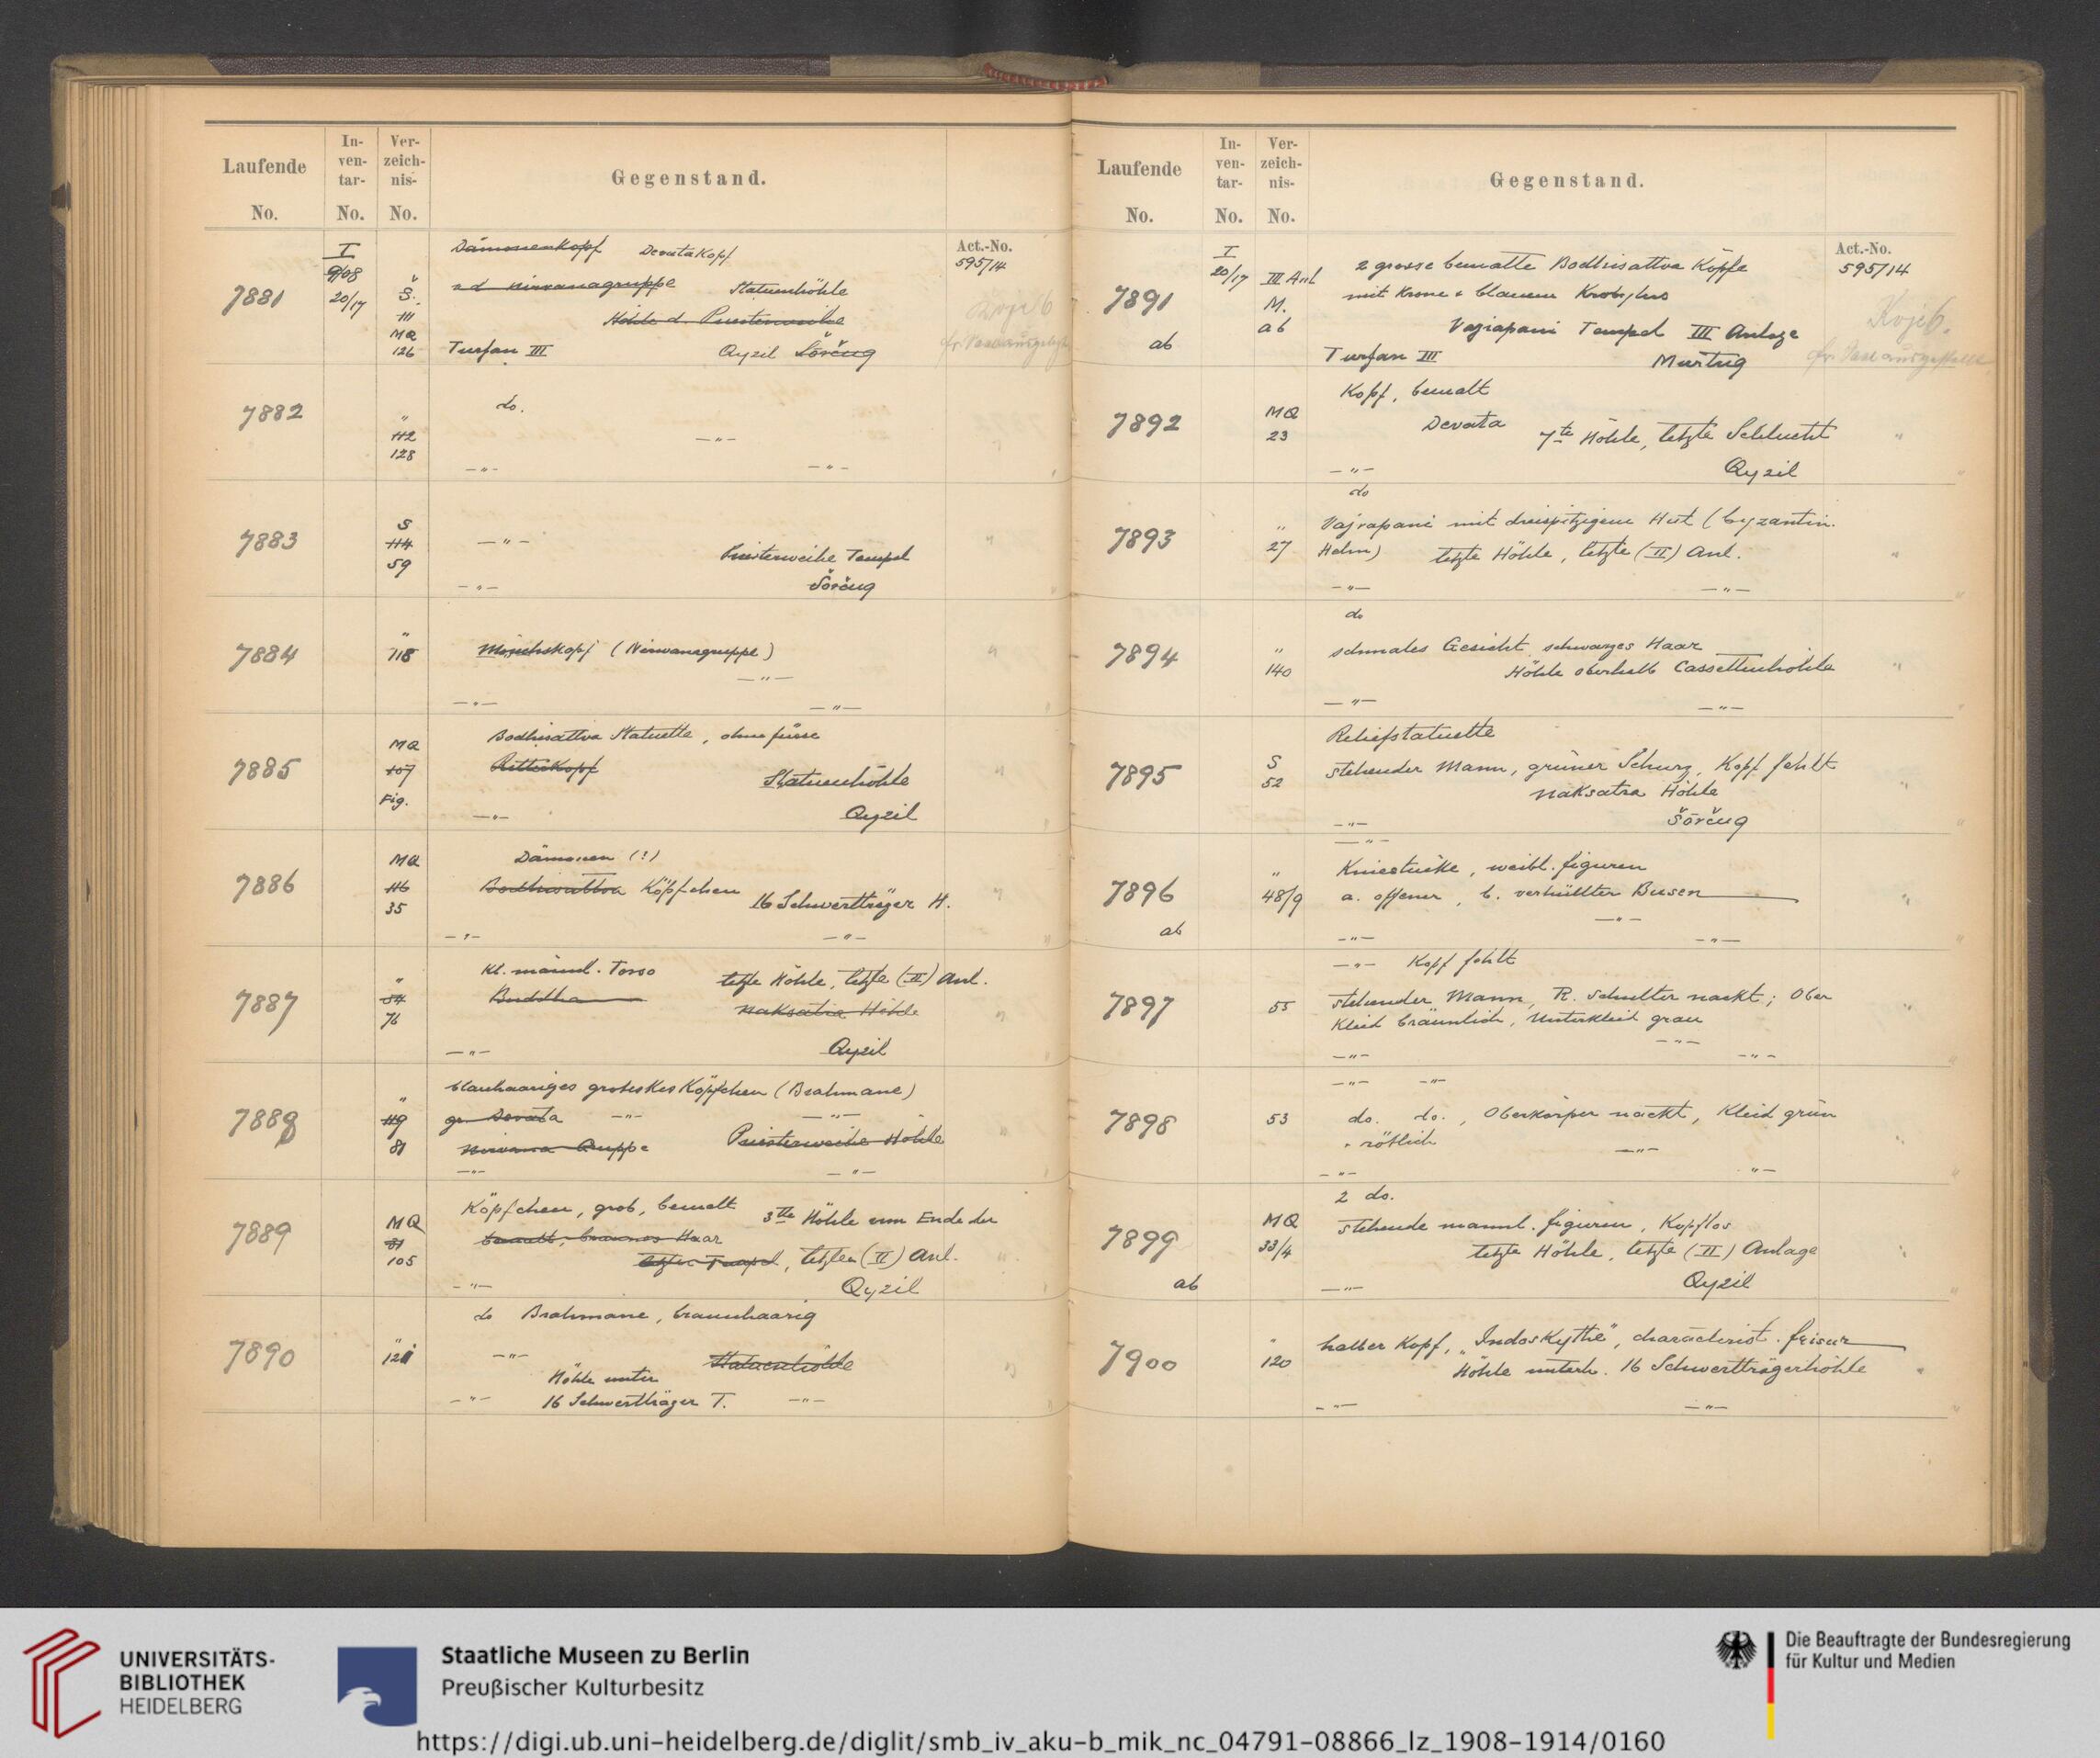 Laufende
No.
In-
ven-
tar-
No.
Ver-
zeich-
nis-
No.
Gegenstand.
7881
I
9/08
20/17
Š.
111
MQ
126
Dämonenkopf Devatakopf
a d Nirvanagruppe Statuenhöhle
Höhle d. Priesterweihe
Turfan III Qyzil Šorčuq
Act.-No.
595/14
Koje 6
7882
"
112
128
do.
—"—
—"— —"—
7883
S
114
59
—"—
Priesterweihe Tempel
—"— Šorčuq
7884
"
118
Mönchskopf (Nirvanagruppe)
—"—
—"— —"—
7885
MQ
107
Fig.
Bodhisattva Statuette, ohne füsse
Ritterkopf
Statuenhöhle
—"— Qyzil
7886
MQ
116
35
Dämonen (?)
Bodhisattva Köpfchen 16 Schwertträger H.
—"— —"—
7887
"
54
76
Kl. männl. Torso letzte Höhle, letzte (II) Anl.
Buddha
Naksatra Höhle
—"— Qyzil
7888
"
119
81
blauhaariges groteskes Köpfchen (Brahmane)
gr. Devata —"— —"—
Nirvana Gruppe Priesterweihe Höhle
—"— —"—
7889
MQ
81
105
Köpfchen, grob, bemalt 3te Höhle vom Ende der
bemalt, braunes Haar
letzter Tempel, letzten (II) Anl.
—"— Qyzil
7890
"
121
do Brahmane, braunhaarig
—"— Statuenhöhle
Höhle unter
—"— 16 Schwertträger T. —"—
Laufende
No.
In-
ven-
tar-
No.
Ver-
zeich-
nis-
No.
Gegenstand.
7891
ab
I
20/17
III Anl
M.
ab
2 grosse bemalte Bodhisattva Köpfe
mit Krone & blauem Krobylos
Vajrapani Tempel III Anlage
Turfan III Murtuq
Act.-No.
595/14
Koje 6.
7892
MQ
23
Kopf, bemalt
Devata 7te Höhle, letzte Schlucht
—"— Qyzil
7893
"
27
do
Vajrapani mit dreispitzigem Hut (byzantin.
Helm) letzte Höhle, letzte (II) Anl.
—"— —"—
7894
"
140
do
schmales Gesicht schwarzes Haar
Höhle oberhalb Cassettenhöhle
—"— —"—
7895
S
52
Reliefstatuette
stehender Mann, grüner Schurz, Kopf fehlt
Naksatra Höhle
—"— Šorčuq
7896
ab
"
48/9
—"—
Kniestücke, weibl. figuren
a. offener, b. verhüllter Busen
—"—
—"— —"—
7897
55
—"— Kopf fehlt
stehender Mann, R. Schulter nackt; Ober
Kleid bräunlich, Unterkleid grau
—"—
—"— —"—
7898
53
—"— —"—
do. do., Oberkörper nackt, Kleid grün
+ rötlich —"—
—"— "—
7899
ab
MQ
33/4
2 do.
stehende männl. figuren, Kopflos
letzte Höhle, letzte (II) Anlage
—"— Qyzil
7900
"
120
halber Kopf, "Indoskythe", characterist. frisur
Höhle unterh. 16 Schwertträgerhöhle
—"— —"—
UNIVERSITÄTS-
BIBLIOTHEK
HEIDELBERG
Staatliche Museen zu Berlin
Preußischer Kulturbesitz
Die Beauftragte der Bundesregierung
für Kultur und Medien
https://digi.ub.uni-heidelberg.de/diglit/smb_iv_aku-b_mik_nc_04791-08866_lz_1908-1914/0160